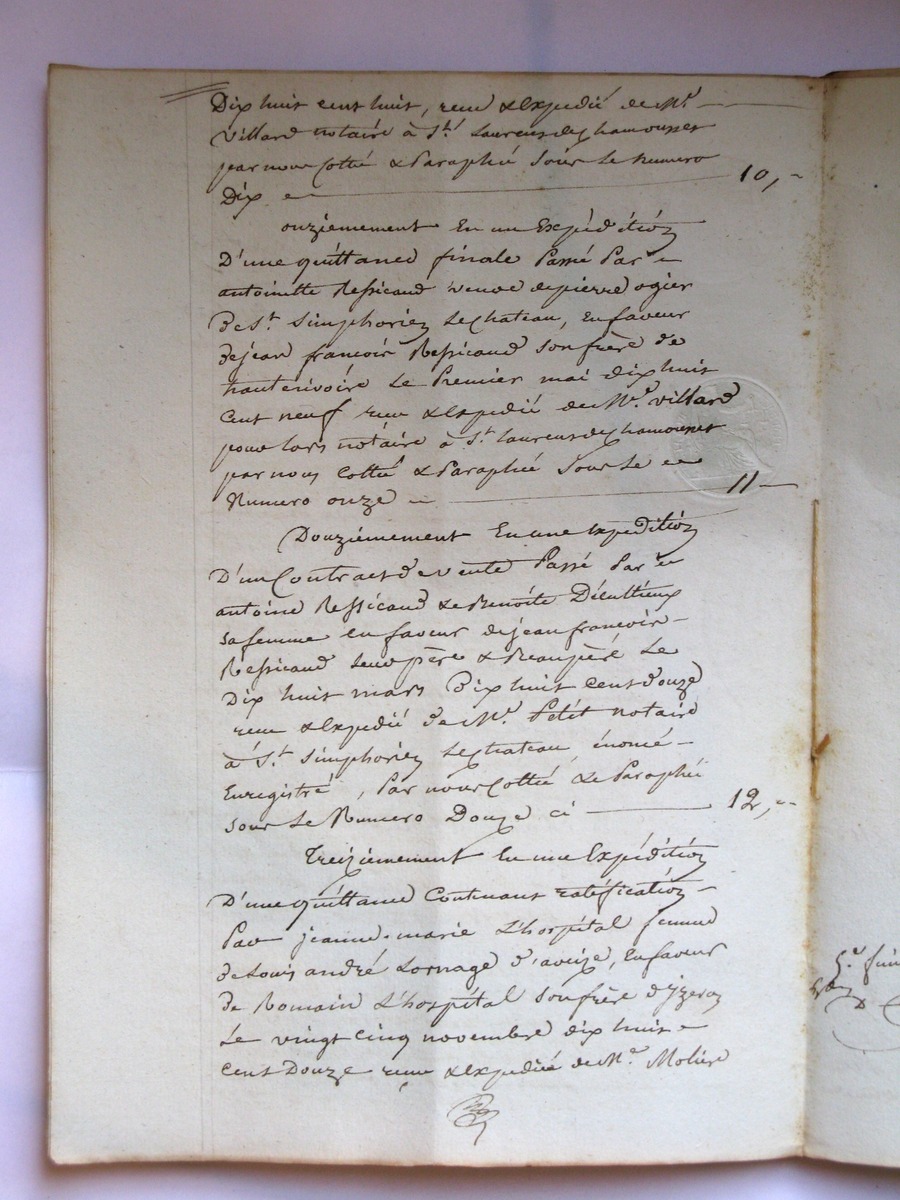 Dix huit cent huit, recu & Expedié de Me
villard notaire à St. Laurens de chamousset
par nous Cotté & Paraphé Sous Le numero
Dix 10,
onziemement En un Expédition
D'une quittance finale Passé Par
antoinette Ressicaud veuve de pierre ogier
De St. Simphorien Le chateau, en faveur
de jean francois Ressicaud son frère de
hauterivoire Le Premier mai dix huit
Cent neuf recu & Expedié de Me. villard
pour lors notaire à St. laurens de chamousset
par nous Cotté & Paraphé Sous Le
Numero onze 11
Douziémement En une Expedition
D'un Contract de vente Passé Par
antoine Ressicaud & Benoite
sa femme en faveur de jean francois
Ressicaud leur père & Beaupère Le
Dix huit mars Dix huit cent douze
recu & Expedié de Me. Petit notaire
à St. Simphorien Le chateau,
Enregistré, Par nous Cotté & Paraphé
sous Le Numero Douze ci 12,
Treiziemement En une Expédition
D'une quittance Contenant ratification
Par jeanne-marie L'hospital femme
de Louis andré Lornage d'aveize, En faveur
de Romain L'hospital son frère d'yzeron
Le vingt cinq novembre dix huit
Cent Douze recu & Expedié de Me. Molière